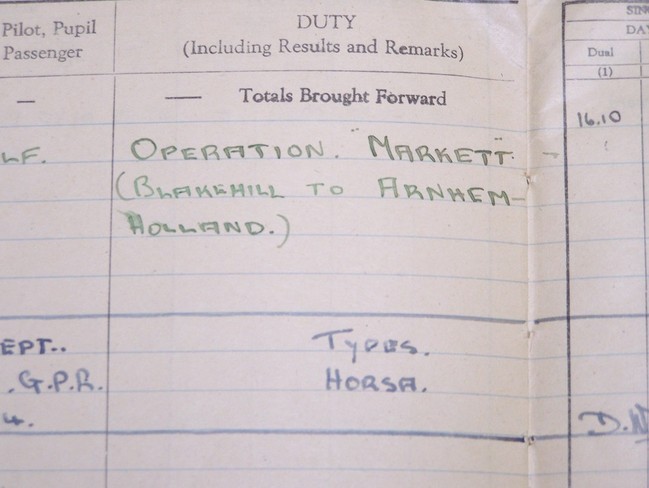 Pilot, Pupil
Passenger
DUTY
(Including Results and Remarks)
DAY
Dual
(1)
—
— Totals Brought Forward
16.10
LF.
OPERATION. "MARKETT"
(BLAKEHILL TO ARNHEM—
HOLLAND.)
EPT..
TYPES.
.G.P.R.
HORSA.
4.